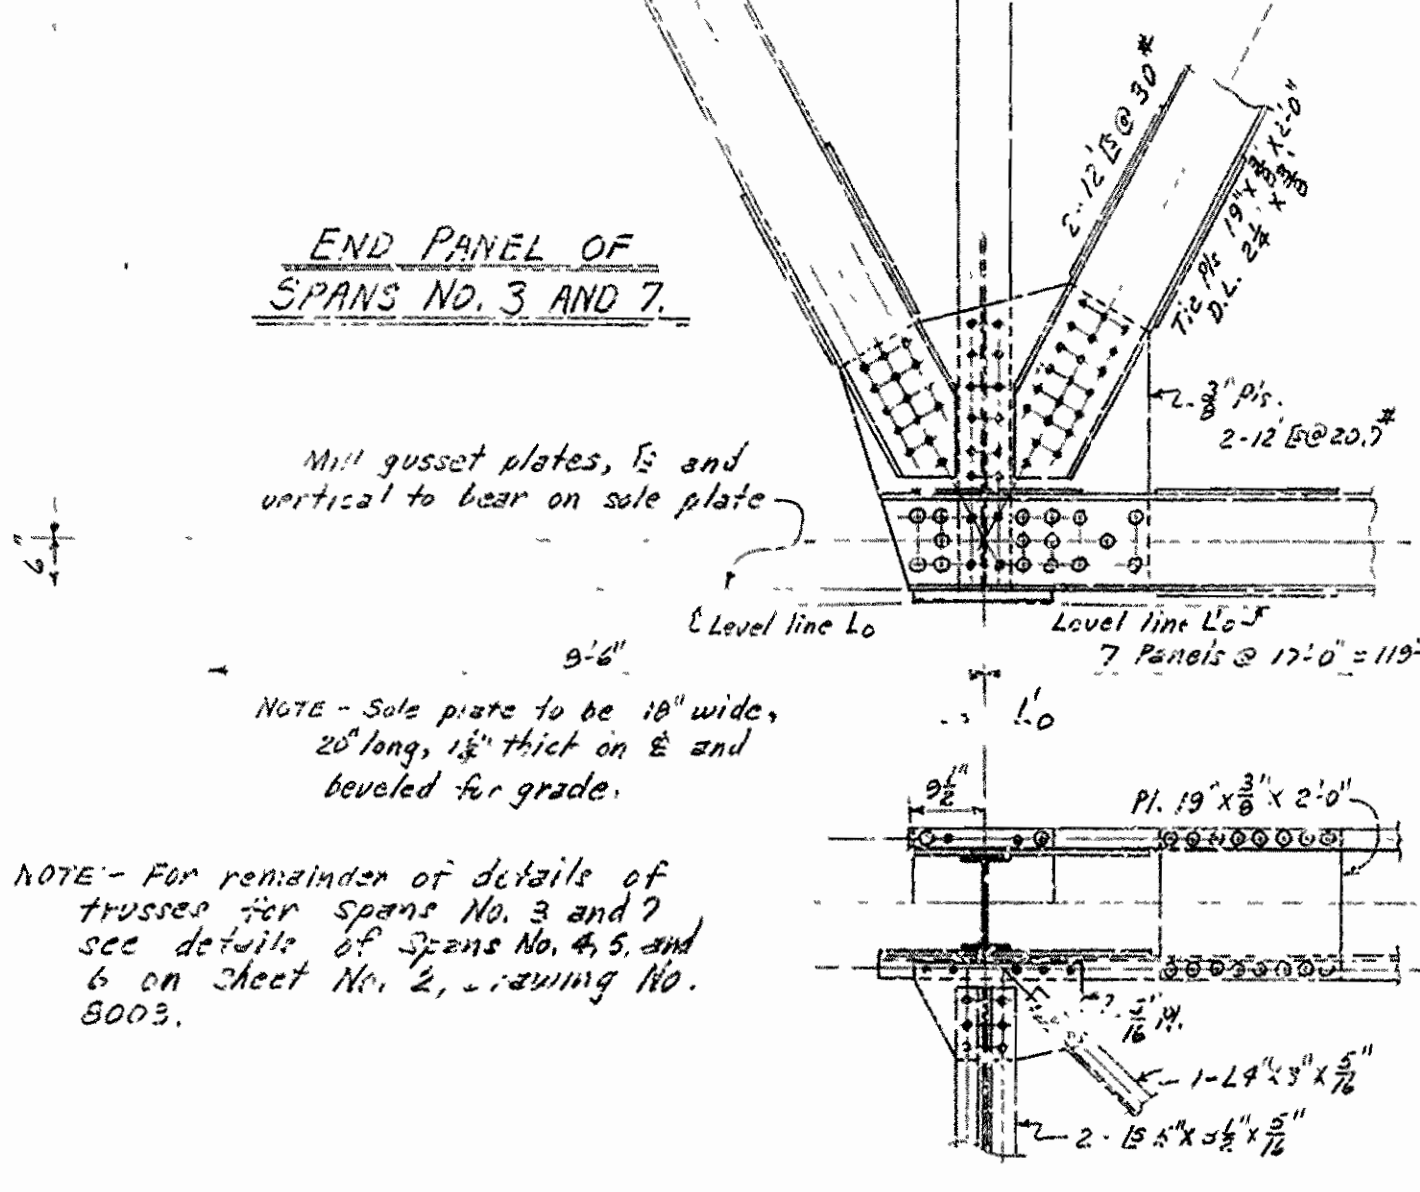 END PANEL OF
SPANS NO. 3 AND 7.
2-12" [s @ 30#
Tie Pls 19" x 3/8" x 2'-0"
D.L. 2 1/4" x 3/8"
2-3/8" Pls.
2-12" [s @ 20.7#
Mill gusset plates, [s and
vertical to bear on sole plate
6"
Level line L0
Level line L'0
9'-6"
7 Panels @ 17'-0" = 119'-
L'0
NOTE - Sole plate to be 18" wide,
20" long, thick on ℄ and
beveled for grade.
9 1/2"
Pl. 19" x 3/8" x 2'-0"
NOTE - For remainder of details of
trusses for Spans No. 3 and 7
see details of Spans No. 4, 5, and
6 on Sheet No. 2, Drawing No.
8003.
5/16" Pl.
1-L 4" x 3" x 5/16"
2 - Ls 5" x 3 1/2" x 5/16"